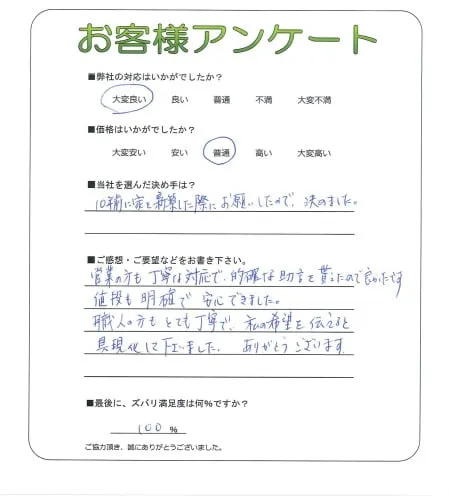 お客様アンケート
■弊社の対応はいかがでしたか？
大変良い 良い 普通 不満 大変不満
■価格はいかがでしたか？
大変安い 安い 普通 高い 大変高い
■当社を選んだ決め手は？
10年前に家を新築した際にお願いしたので、決めました。
■ご感想・ご要望などをお書き下さい。
営業の方も丁寧な対応で、的確な助言を貰えたので良かったです
値段も明確で安心できました。
職人の方もとても丁寧で、私の希望を伝えると
具現化して下さいました。ありがとうございます。
■最後に、ズバリ満足度は何％ですか？
100 %
ご協力頂き、誠にありがとうございました。